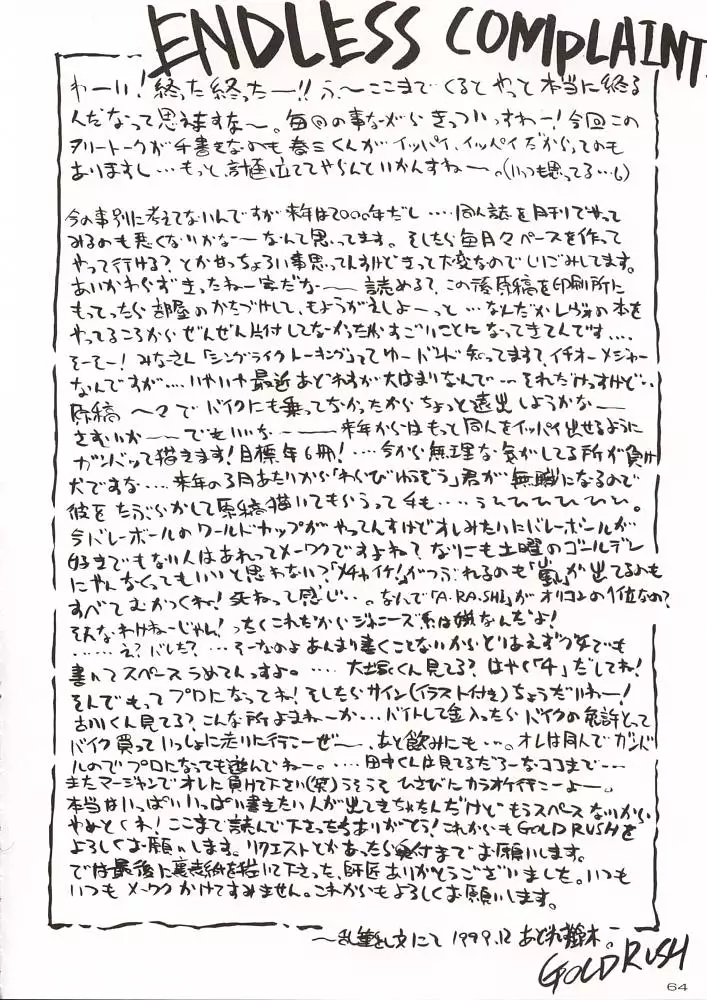 ENDLESS COMPLAINT.
わーい!終った終ったー!!ふぃ〜ここまでくるとやっと本当に終る
んだなって思えますな〜。毎回の事ながらきっついっすわー!今回この
フリートークが手書きなのも春三くんがイッパイ、イッパイだからってのも
ありますし…もっと、計画立ててやらんといかんすねー。(いつも思ってる…し)
今の事別に考えてないんですが来年は2000年だし‥‥同人誌を月刊でやって
みるのも悪くないかなー なんて思ってます。そしたら毎月々ペースを作って
やって行ける?とか甘っちょろい事思ってんすけどきっと大変なのでしいごみしてます。
あいかわらずきったねー字だなー 読める?この後原稿を印刷所に
もってったら部屋のかたづけして、もようがえしよーっと…なんだかレヴォの本を
やってるころからぜんぜん片付してなかったからすごいことになってきてんです‥‥
そーそー!みなさん「シングライクトーキング」ってゆーバンド知ってます?イチオーメジャー
なんですが‥‥いやいや最近あどれすが大はまりなんで…それだけっすけど‥
原稿ヘ々でバイクにも乗ってなかったからちょっと遠出しようかなー
さむいかーーでもいいなーー来年からはもっと同人をイッパイ出せるように
ガンバって描きます!目標年6冊!‥‥今から無理な気がしてる所が負け
犬ですな‥‥来年の3月あたりから「わいびゆうぞう」君が無職になるので
彼をたぶらかして原稿描いてもらうって手も‥‥うひひひひひひ。
今バレーボールのワールドカップがやってんすけどオレみたいにバレーボールが
好きでもない人はあれってメーワクですよね?なにも土曜のゴールデン
にやんなくってもいいと思わない?「メチャイケ!」がつぶれるのも「嵐」が出てるのも
すべてむかつくね!死ねって感じ…。なんで「A・RA・SHI」がオリコンの1位なの?
そんなわけねーじゃん!ったくこれだからジャニーズ系は嫌なんだよ!
‥‥‥え?バレた?‥‥そーなのよあんまり書くことないからとりあえずウダでも
書いてスペースうめてんっすよ。‥‥大塚くん見てる?はやく「4」だしてね!
そんでもってプロになってね!そしたらサイン(イラスト付き)ちょうだいねー!
古川くん見てる?こんな所よまねーか…バイトして金入ったらバイクの免許とって
バイク買っていっしょに走りに行こーぜー、あと飲みにも…。オレは同人でガンバ
ルのでプロになっても遊んでねー。‥‥田中くんは見てるだろーなココまで…
またマージャンでオレに負けて下さい(笑)うそうそひさびにカラオケ行こーよー。
本当はいっぱいいっぱい書きたい人が出てきちゃたんだけどもうスペースないから
やめとくネ!ここまで読んで下さったちありがとう!これからもGOLD RUSHを
よろしくお願いします。リクエストとかあったら奥付までお願いします。
では最後に裏表紙を描いて下さった、師匠ありがとうございました。いつも
いつもメーワクかけてすみません。これからもよろしくお願いします。
〜乱筆乱文にて 1999.12 あどれす鈴木。
GOLD RUSH
64